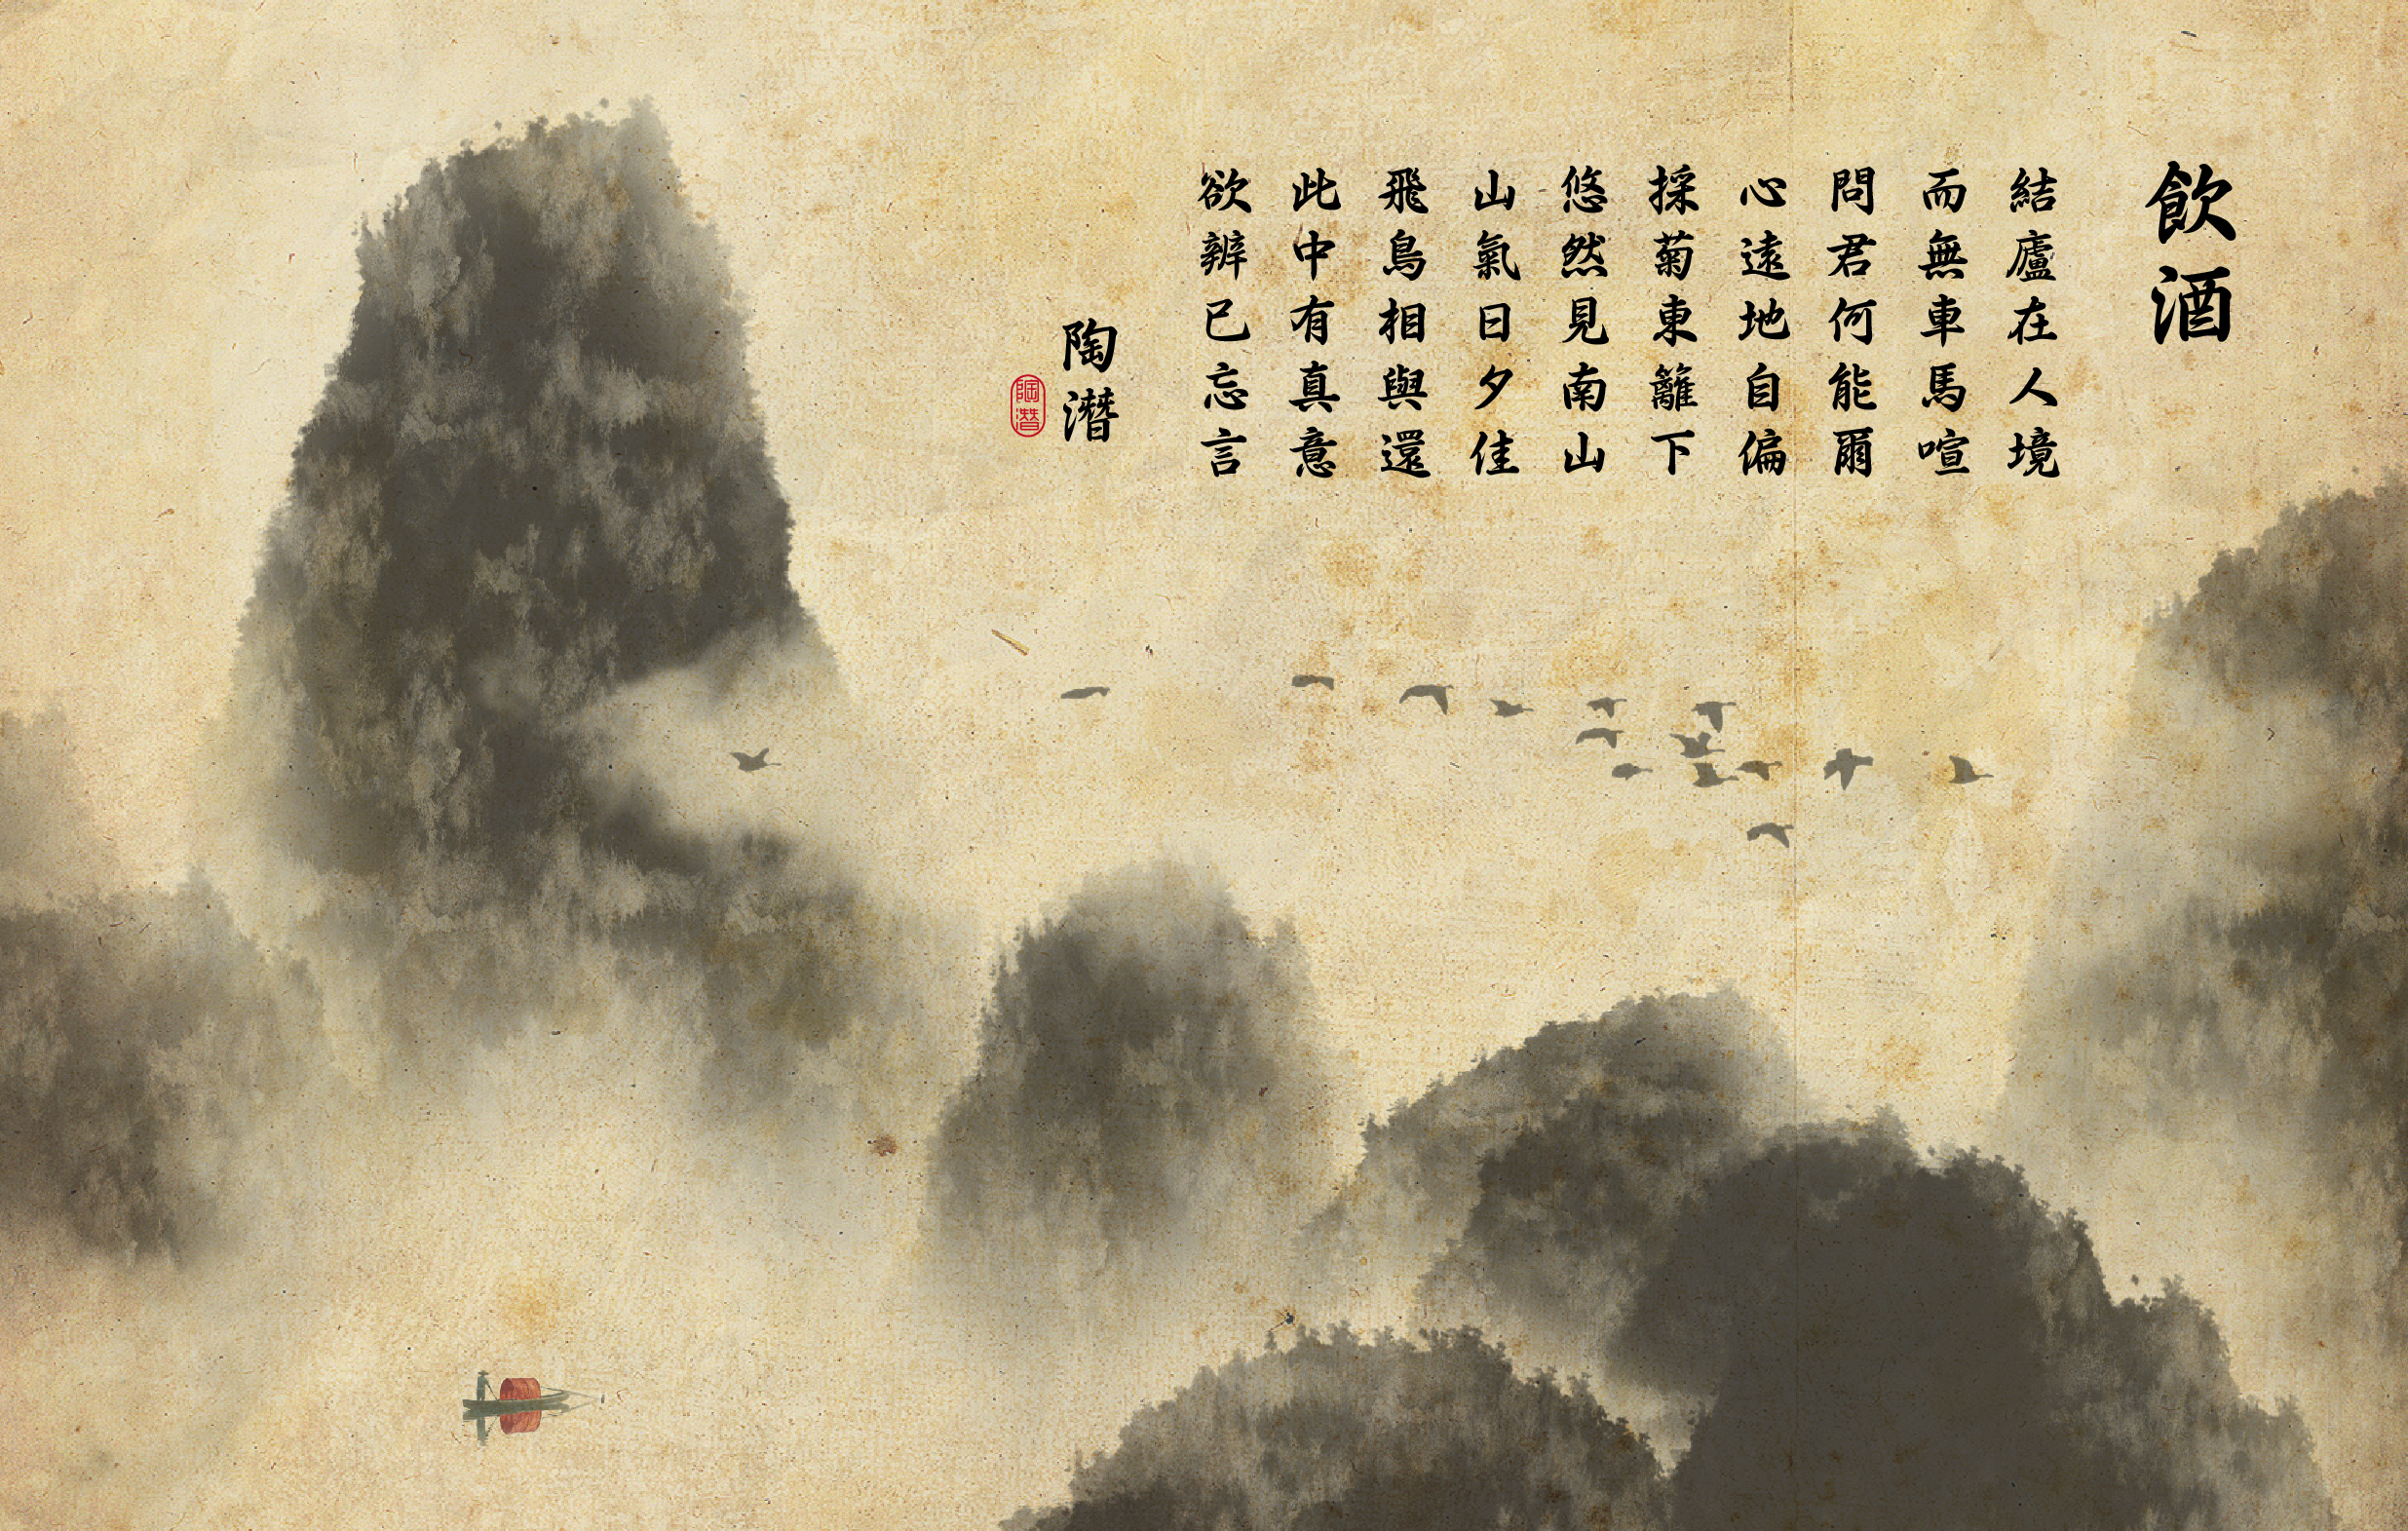 飲酒
結廬在人境
而無車馬喧
問君何能爾
心遠地自偏
採菊東籬下
悠然見南山
山氣日夕佳
飛鳥相與還
此中有真意
欲辨已忘言
陶潛
陶潛